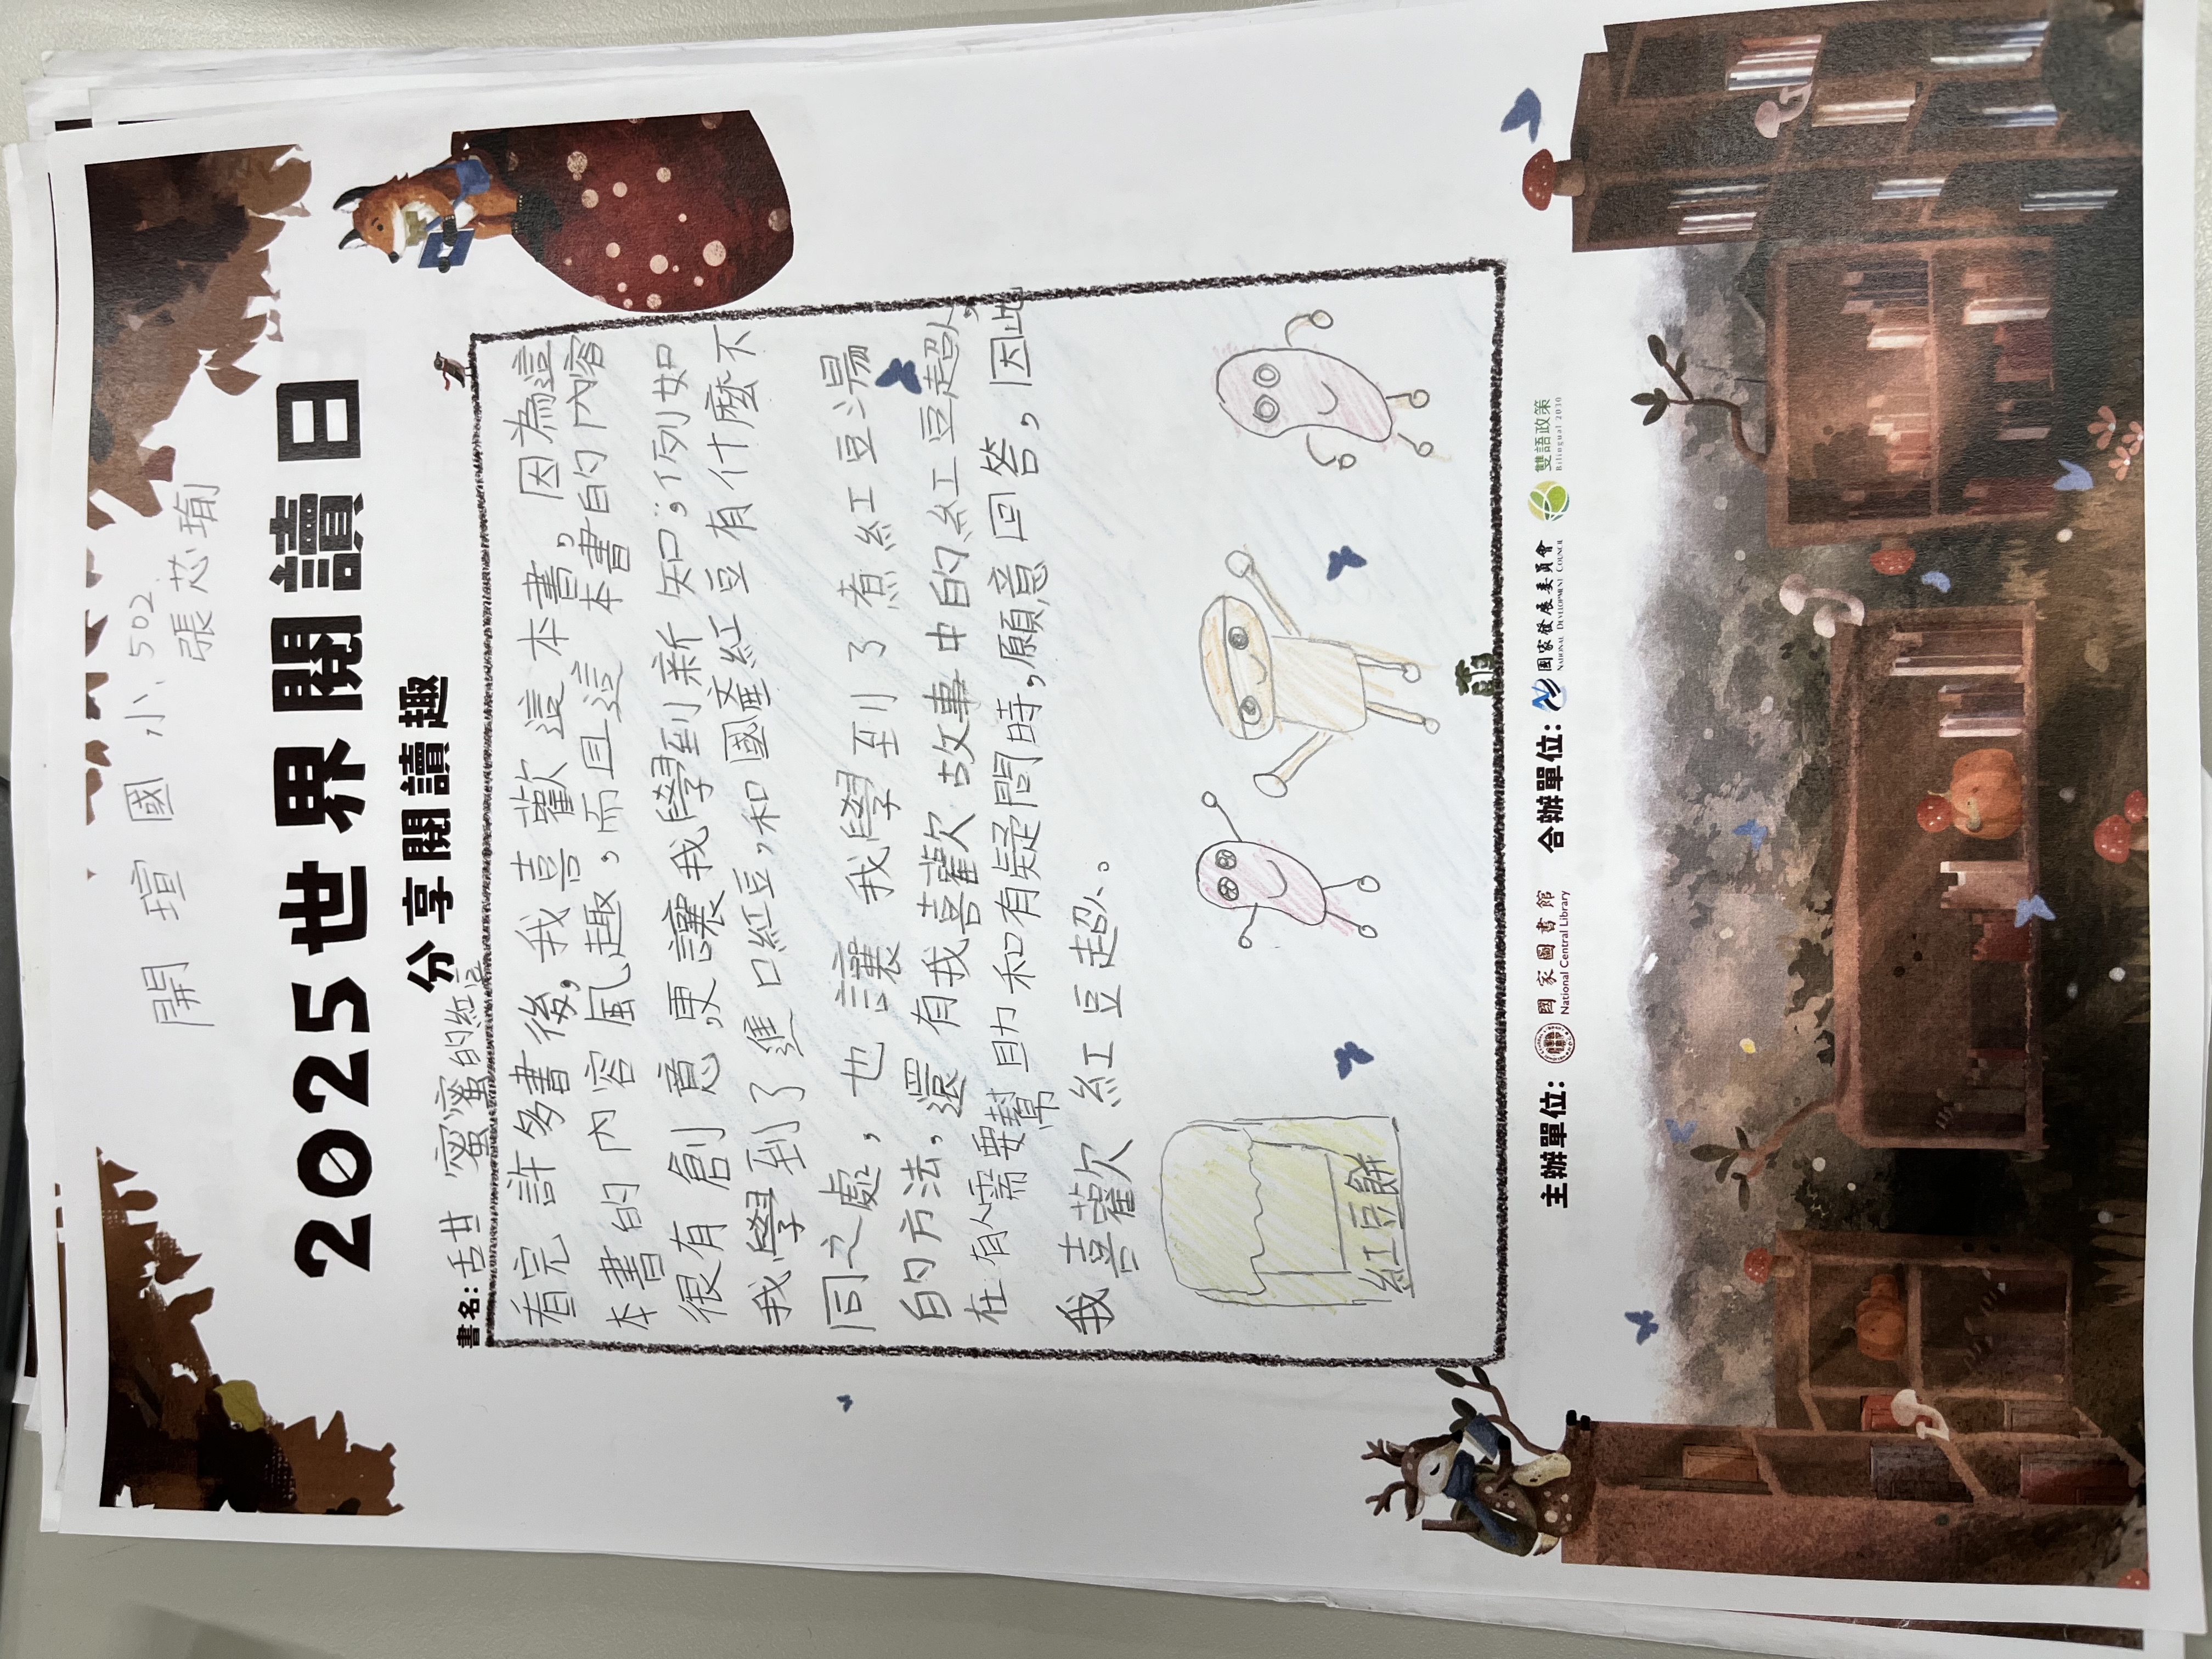 開瑄國小 502
張芯瑜
2025世界閱讀日
分享閱讀趣
書名: 舌甘蜜蜜的紅豆
看完許多書後,我喜歡這本書,因為這
本書的內容風趣,而且這本書的內容
很有創意,更讓我學到新知;例如
我學到了進口紅豆,和國產紅豆有什麼不
同之處,也讓我學到了煮紅豆湯
的方法,還有我喜歡故事中的紅豆超人,
在有人需要幫助和有疑問時,願意回答,因此
我喜歡紅豆超人。
紅豆餅
主辦單位: 國家圖書館 National Central Library 合辦單位: 國家發展委員會 NATIONAL DEVELOPMENT COUNCIL 雙語政策 Bilingual 2030